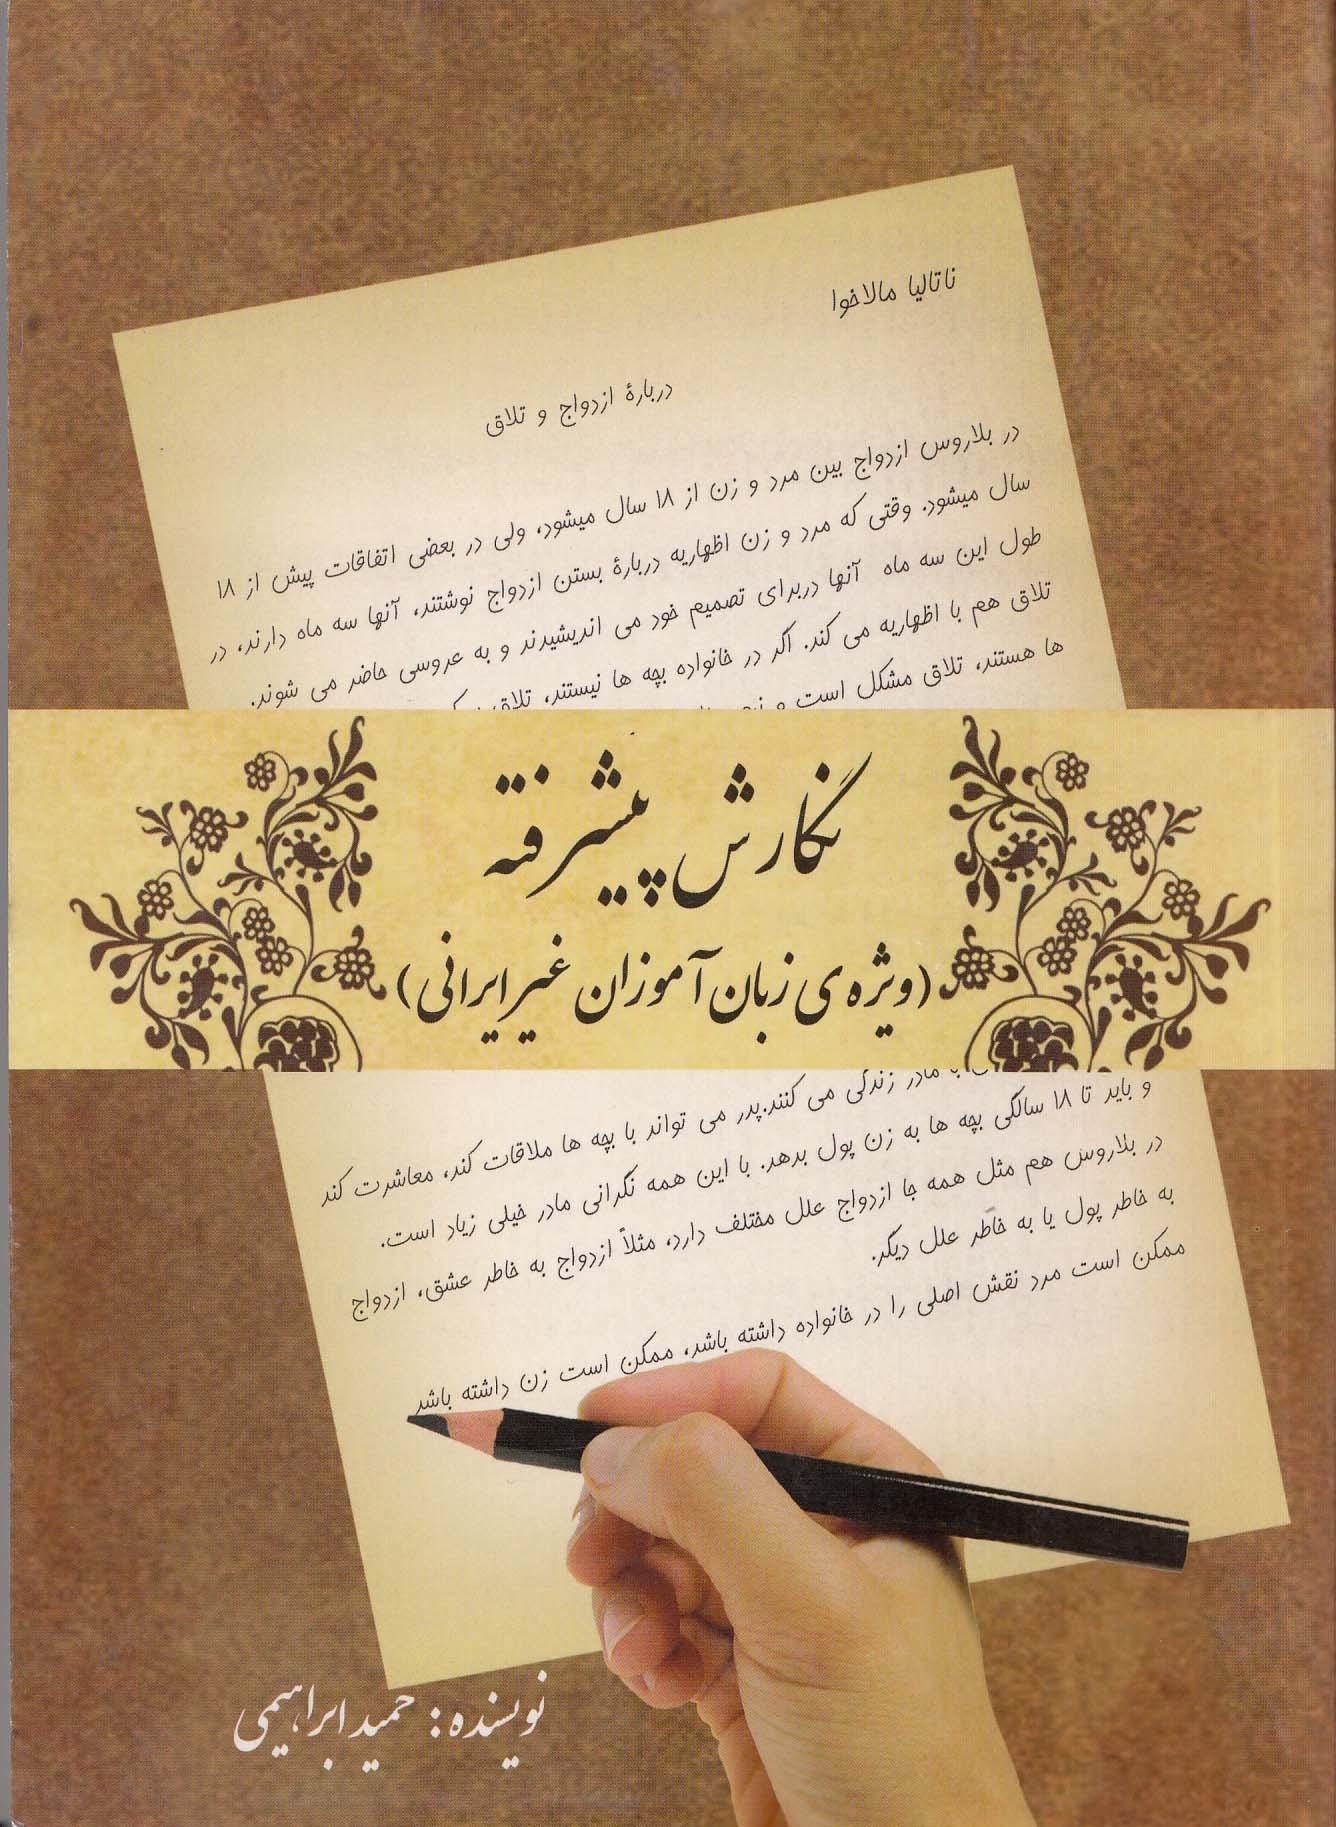 ناتالیا مالاخوا
دربارهٔ ازدواج و تلاق
در بلاروس ازدواج بین مرد و زن از ۱۸ سال میشود، ولی در بعضی اتفاقات پیش از ۱۸
سال میشود. وقتی که مرد و زن اظهاریه دربارهٔ بستن ازدواج نوشتند، آنها سه ماه دارند، در
طول این سه ماه آنها دربرای تصمیم خود می اندیشیدند و به عروسی حاضر می شوند.
تلاق هم با اظهاریه می کند. اگر در خانواده بچه ها نیستند، تلاق
ها هستند، تلاق مشکل است و
نگارش پیشرفته
(ویژه ی زبان آموزان غیر ایرانی)
با مادر زندگی می کنند.پدر می تواند با بچه ها ملاقات کند، معاشرت کند
و باید تا ۱۸ سالگی بچه ها به زن پول بدهد. با این همه نگرانی مادر خیلی زیاد است.
در بلاروس هم مثل همه جا ازدواج علل مختلف دارد، مثلاً ازدواج به خاطر عشق، ازدواج
به خاطر پول یا به خاطر علل دیگر.
ممکن است مرد نقش اصلی را در خانواده داشته باشد، ممکن است زن داشته باشد
نویسنده: حمید ابراهیمی